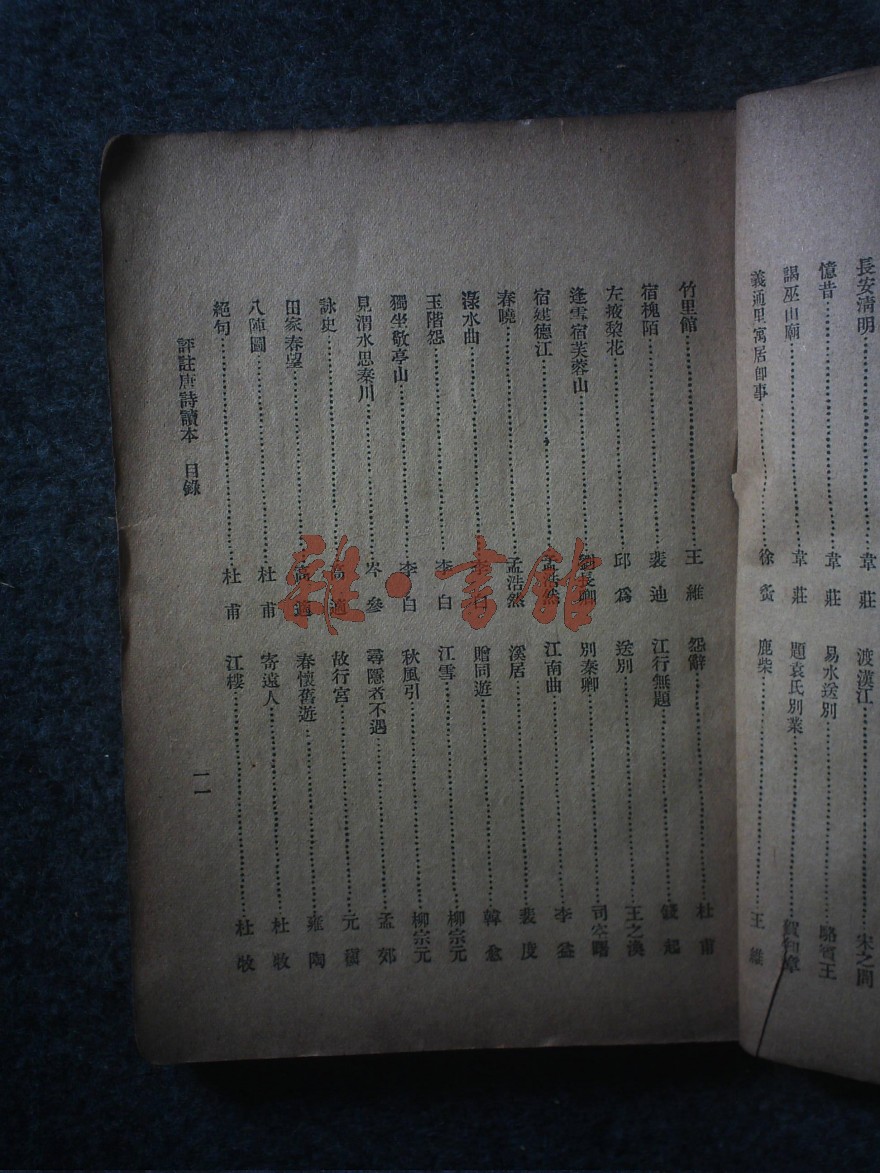 長安清明……韋莊
憶昔……韋莊
謁巫山廟……韋莊
義通里寓居卽事……徐夤
渡漢江……宋之問
易水送別……駱賓王
題袁氏別業……賀知章
鹿柴……王維
竹里館……王維
宿槐陌……裴迪
左掖棃花……邱爲
逢雪宿芙蓉山……劉長卿
宿建德江……孟浩然
春曉……孟浩然
淥水曲……李白
玉階怨……李白
獨坐敬亭山……李白
見渭水思秦川……岑參
詠史……高適
田家春望……高適
八陣圖……杜甫
絕句……杜甫
怨辭……杜甫
江行無題……錢起
送別……王之渙
別秦卿……司空曙
江南曲……李益
溪居……裴度
贈同遊……韓愈
江雪……柳宗元
秋風引……柳宗元
尋隱者不遇……孟郊
故行宮……元稹
春懷舊遊……雍陶
寄遠人……杜牧
江樓……杜牧
評註唐詩讀本 目錄
一一
雜·書館